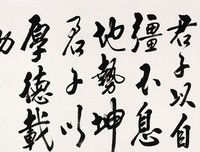 君子以自
彊不息
地勢坤
君子以
厚德載